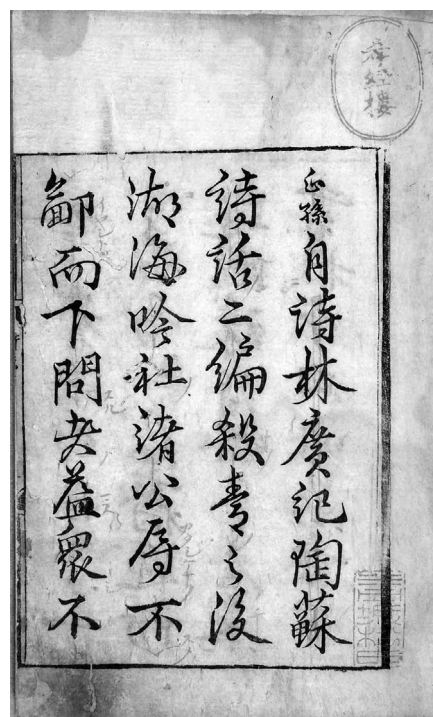 孝經樓
正孫自詩林廣記陶蘇
詩話二編殺青之後
湖海吟社諸公辱不
鄙而下問者蓋眾不